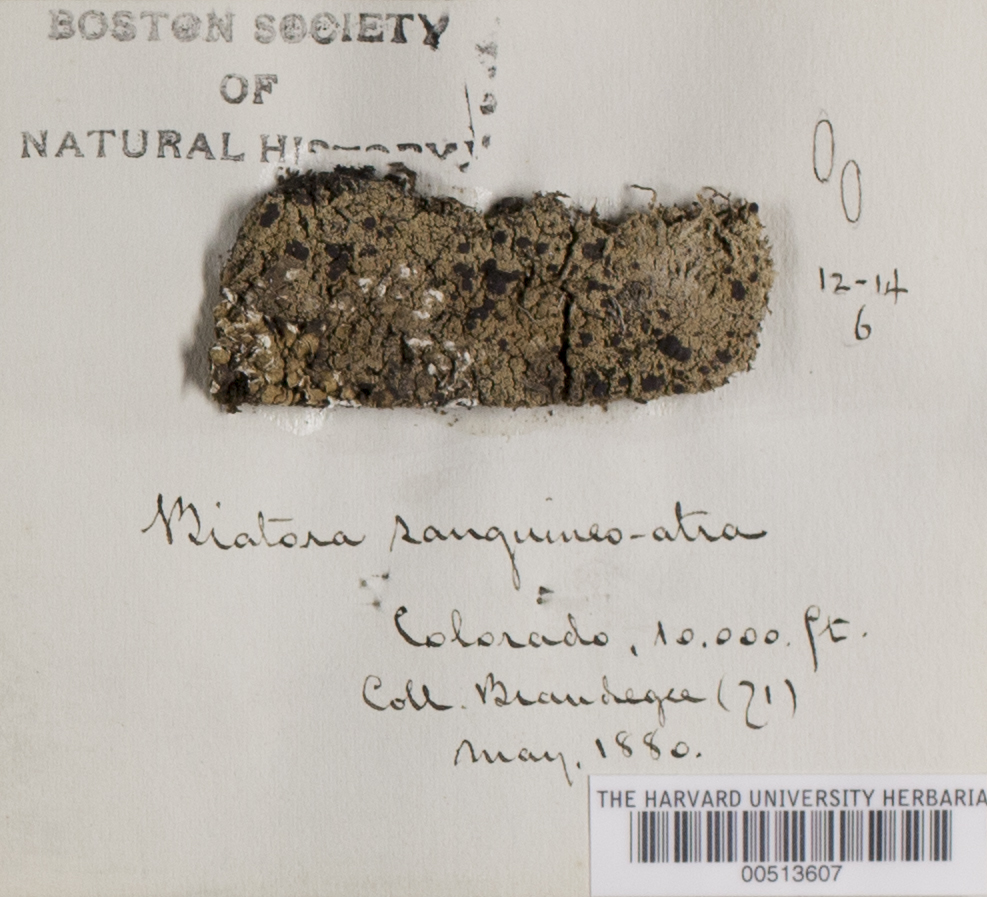 BOSTON SOCIETY
OF
NATURAL HISTORY
12-14
6
Biatora sanguineo-atra
Colorado, 10.000. ft.
Coll. Brandegee (71)
May, 1880.
THE HARVARD UNIVERSITY HERBARIA
00513607